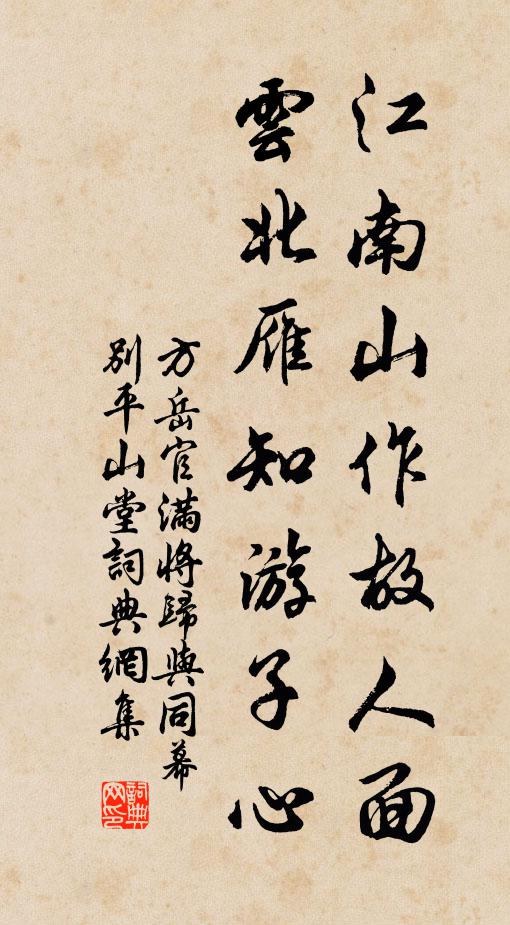 江南山作故人面
雲北雁知游子心
方岳官滿將歸與同幕
別平山堂詞典網集
詞典网印